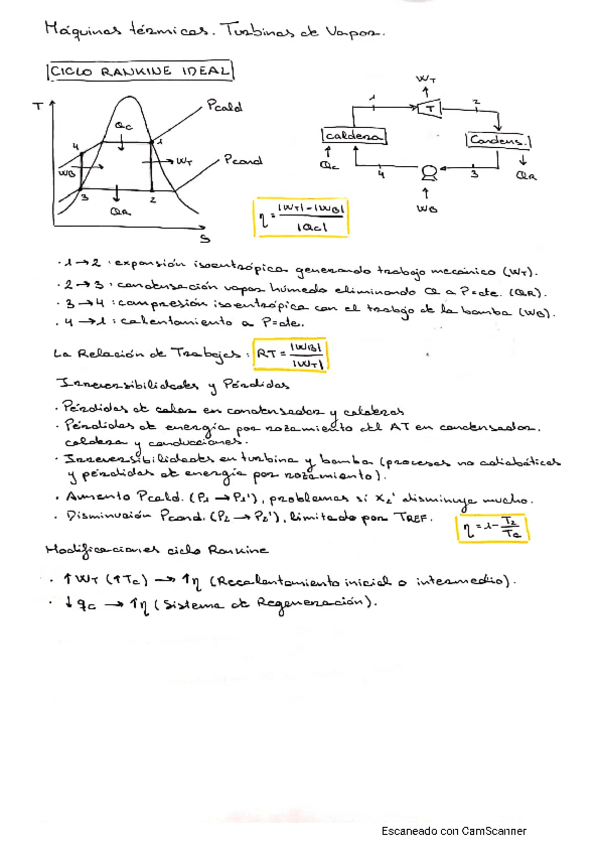 Máquinas térmicas. Turbinas de Vapor.
CICLO RANKINE IDEAL
T
Pcald
Qc
4
1
WT
Pcond
WB
3
2
QR
S
WT
1
T
2
caldera
Condens.
Qc
4
3
QR
WB
η = |WT|-|WB| / |Qc|
· 1→2 : expansión isoentrópica generando trabajo mecánico (WT).
· 2→3 : condensación vapor húmedo eliminando Q a P=cte. (QR).
· 3→4 : compresión isoentrópica con el trabajo de la bomba (WB).
· 4→1 : calentamiento a P=cte.
La Relación de Trabajos : RT = |WB| / |WT|
Irreversibilidades y Pérdidas
· Pérdidas de calor en condensador y calderas
· Pérdidas de energía por rozamiento del AT en condensador,
caldera y conducciones.
· Irreversibilidades en turbina y bomba (procesos no adiabáticos
y pérdidas de energía por rozamiento).
· Aumento Pcald. (P1 → P1'), problemas si X2' disminuye mucho.
· Disminución Pcond. (P2 → P2'), limitado por TREF.
η = 1 -
Modificaciones ciclo Rankine
· ↑WT (↑Tc) → ↑η (Recalentamiento inicial o intermedio).
· ↓qc → ↑η (Sistema de Regeneración).
Escaneado con CamScanner